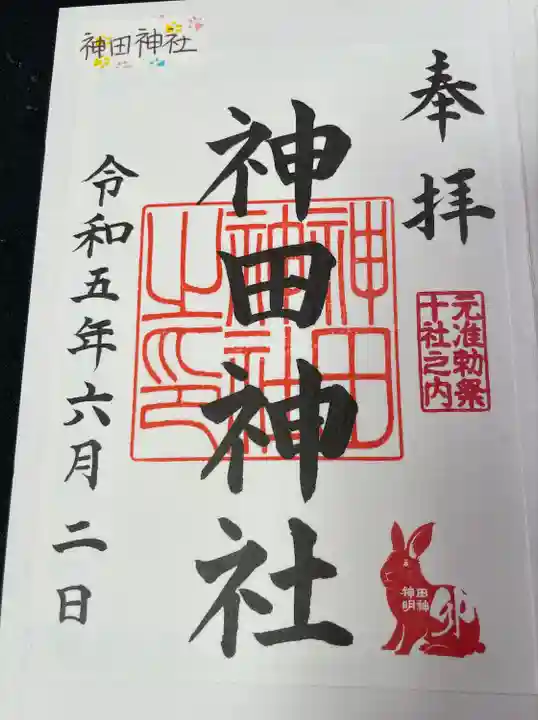 神田神社
奉拝
元准勅祭
十社之内
神田神社
神田
神社
之印
神田
明神
卯
令和五年六月二日